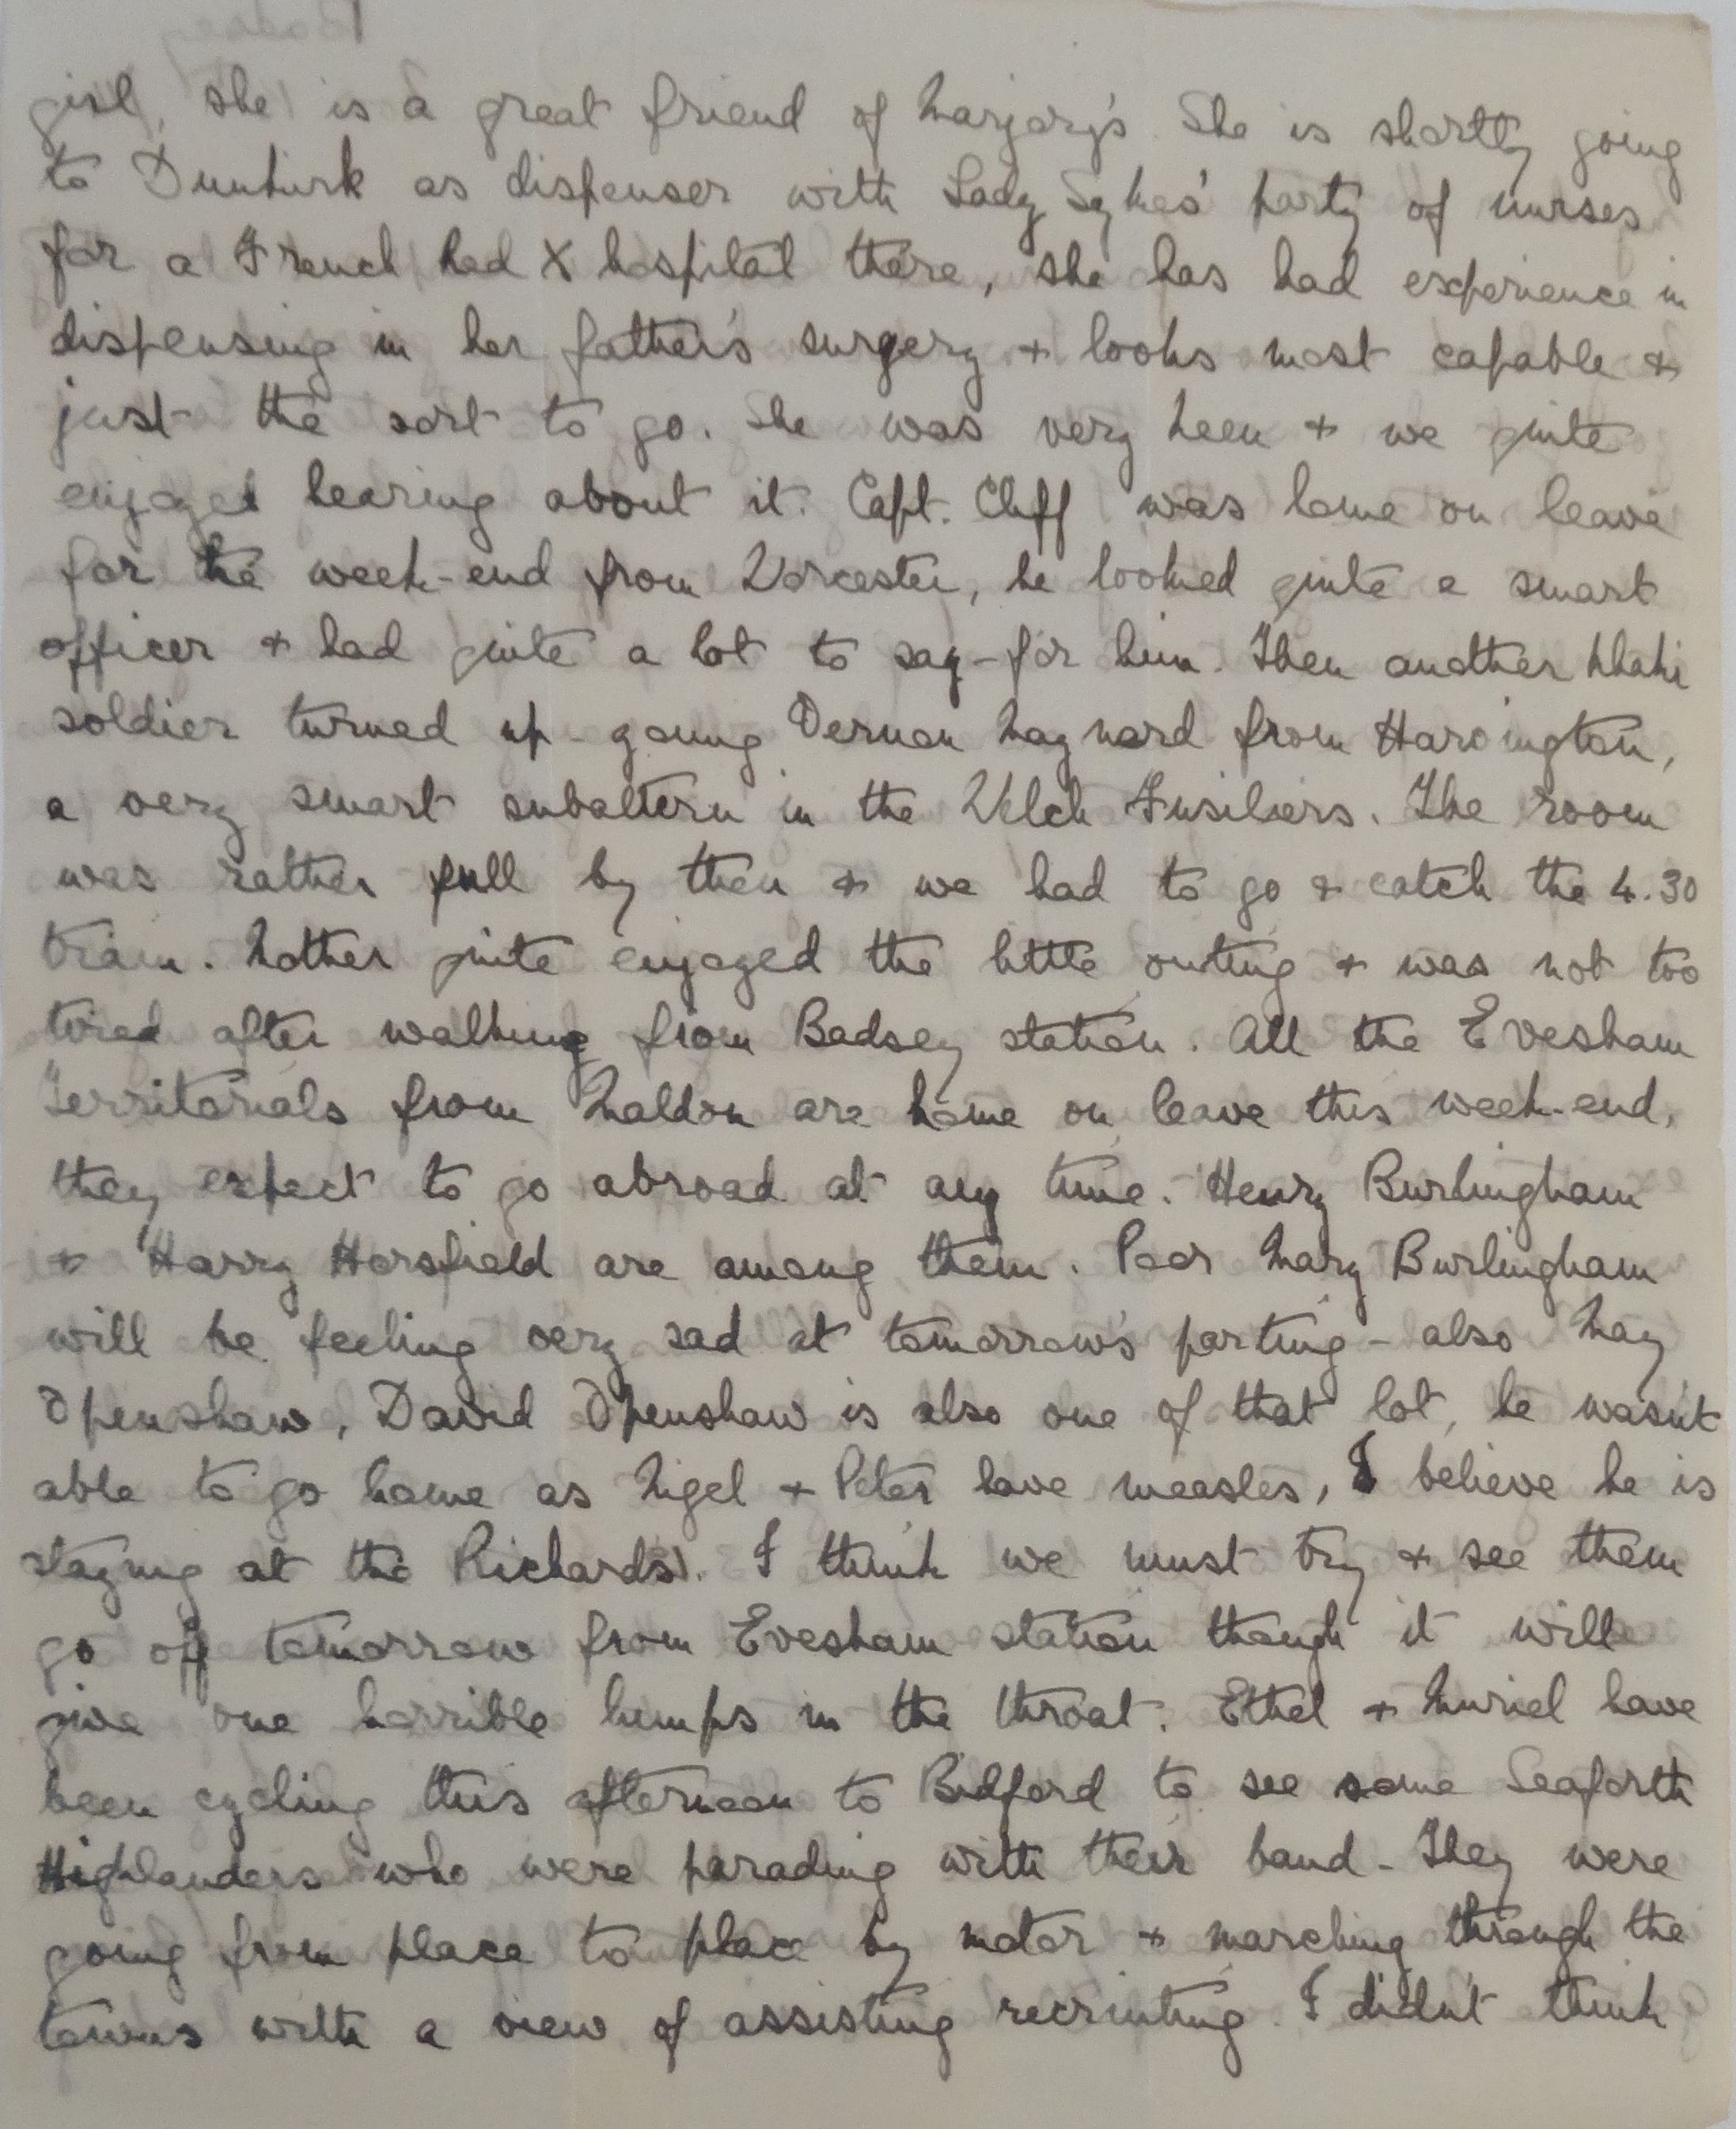 girl, she is a great friend of Marjory's. She is shortly going
to Dunkirk as dispenser with Lady Sykes' party of nurses
for a French Red X hospital there, she has had experience in
dispensing in her father's surgery + looks most capable +
just the sort to go. She was very keen + we quite
enjoyed hearing about it. Capt. Cliff was home on leave
for the week-end from Worcester, he looked quite a smart
officer + had quite a lot to say - for him. Then another khaki
soldier turned up - young Vernon Maynard from Harvington,
a very smart subaltern in the Welch Fusiliers. The room
was rather full by then + we had to go + catch the 4.30
train. Mother quite enjoyed the little outing + was not too
tired after walking from Badsey station. All the Evesham
Territorials from Maldon are home on leave this week-end,
they expect to go abroad at any time. Henry Burlingham
+ Harry Horsfield are among them. Poor Mary Burlingham
will be feeling very sad at tomorrow's parting - also May
Openshaw. David Openshaw is also one of that lot, he wasn't
able to go home as Nigel + Peter have measles, I believe he is
staying at the Richards'. I think we must try + see them
go off tomorrow from Evesham station though it will
give one horrible lumps in the throat. Ethel + Muriel have
been cycling this afternoon to Bidford to see some Seaforth
Highlanders who were parading with their band - They were
going from place to place by motor + marching through the
towns with a view of assisting recruiting. I didn't think